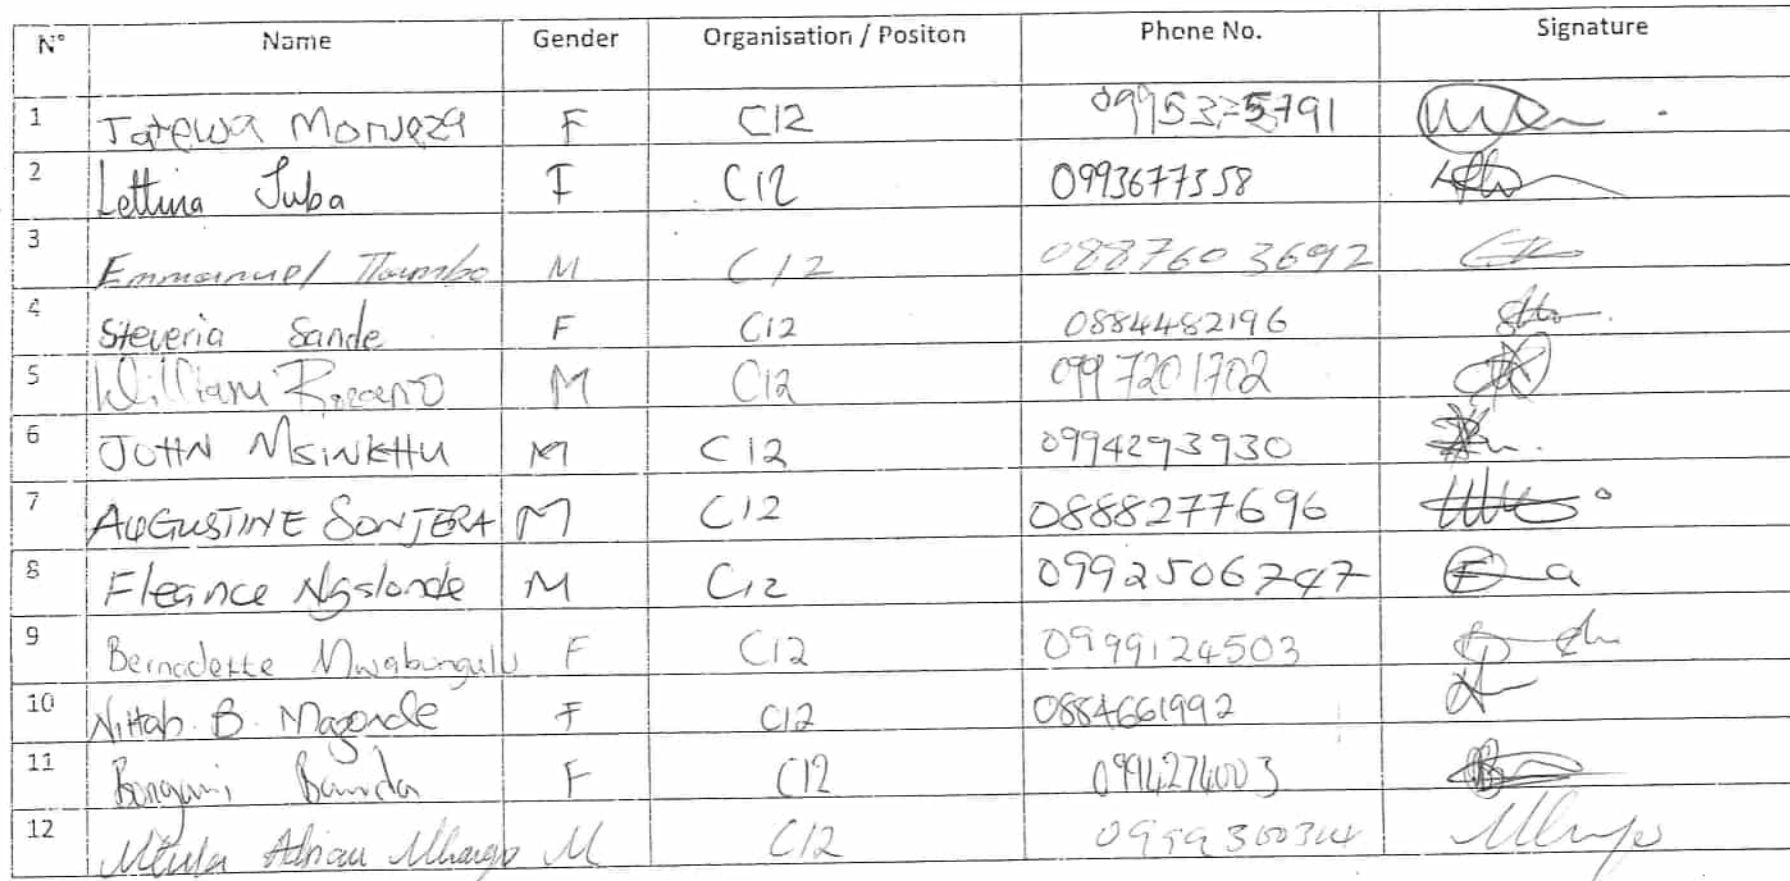 N° Name Gender Organisation / Positon Phone No. Signature
1 Tatewa F C12
2 Lettina Juba F C12 0993677358
3 Emmanuel M C12 0887603692
4 Steveria Sande F C12 0884482196
5 William M C12 0997201702
6 JOHN MSINKHU M C12 0994293930
7 AUGUSTINE SONJERA M C12 0888277696
8 Eleance M C12 0992506747
9 Bernadette Mwabungulu F C12 0999124503
10 B. Magonde F C12 0884661992
11 Bongani Banda F C12
12 M C12